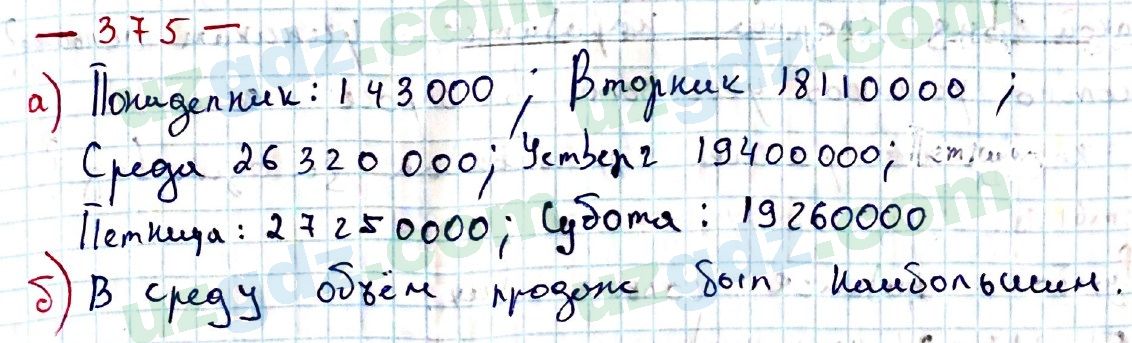 — 375 —
а) Понидельник: 143000; Вторник 18110000;
Среда 26320000; Четверг 19400000;
Петница: 27250000; Субота: 19260000
б) В среду объём продаж был наибольшим.
uzgdz.com